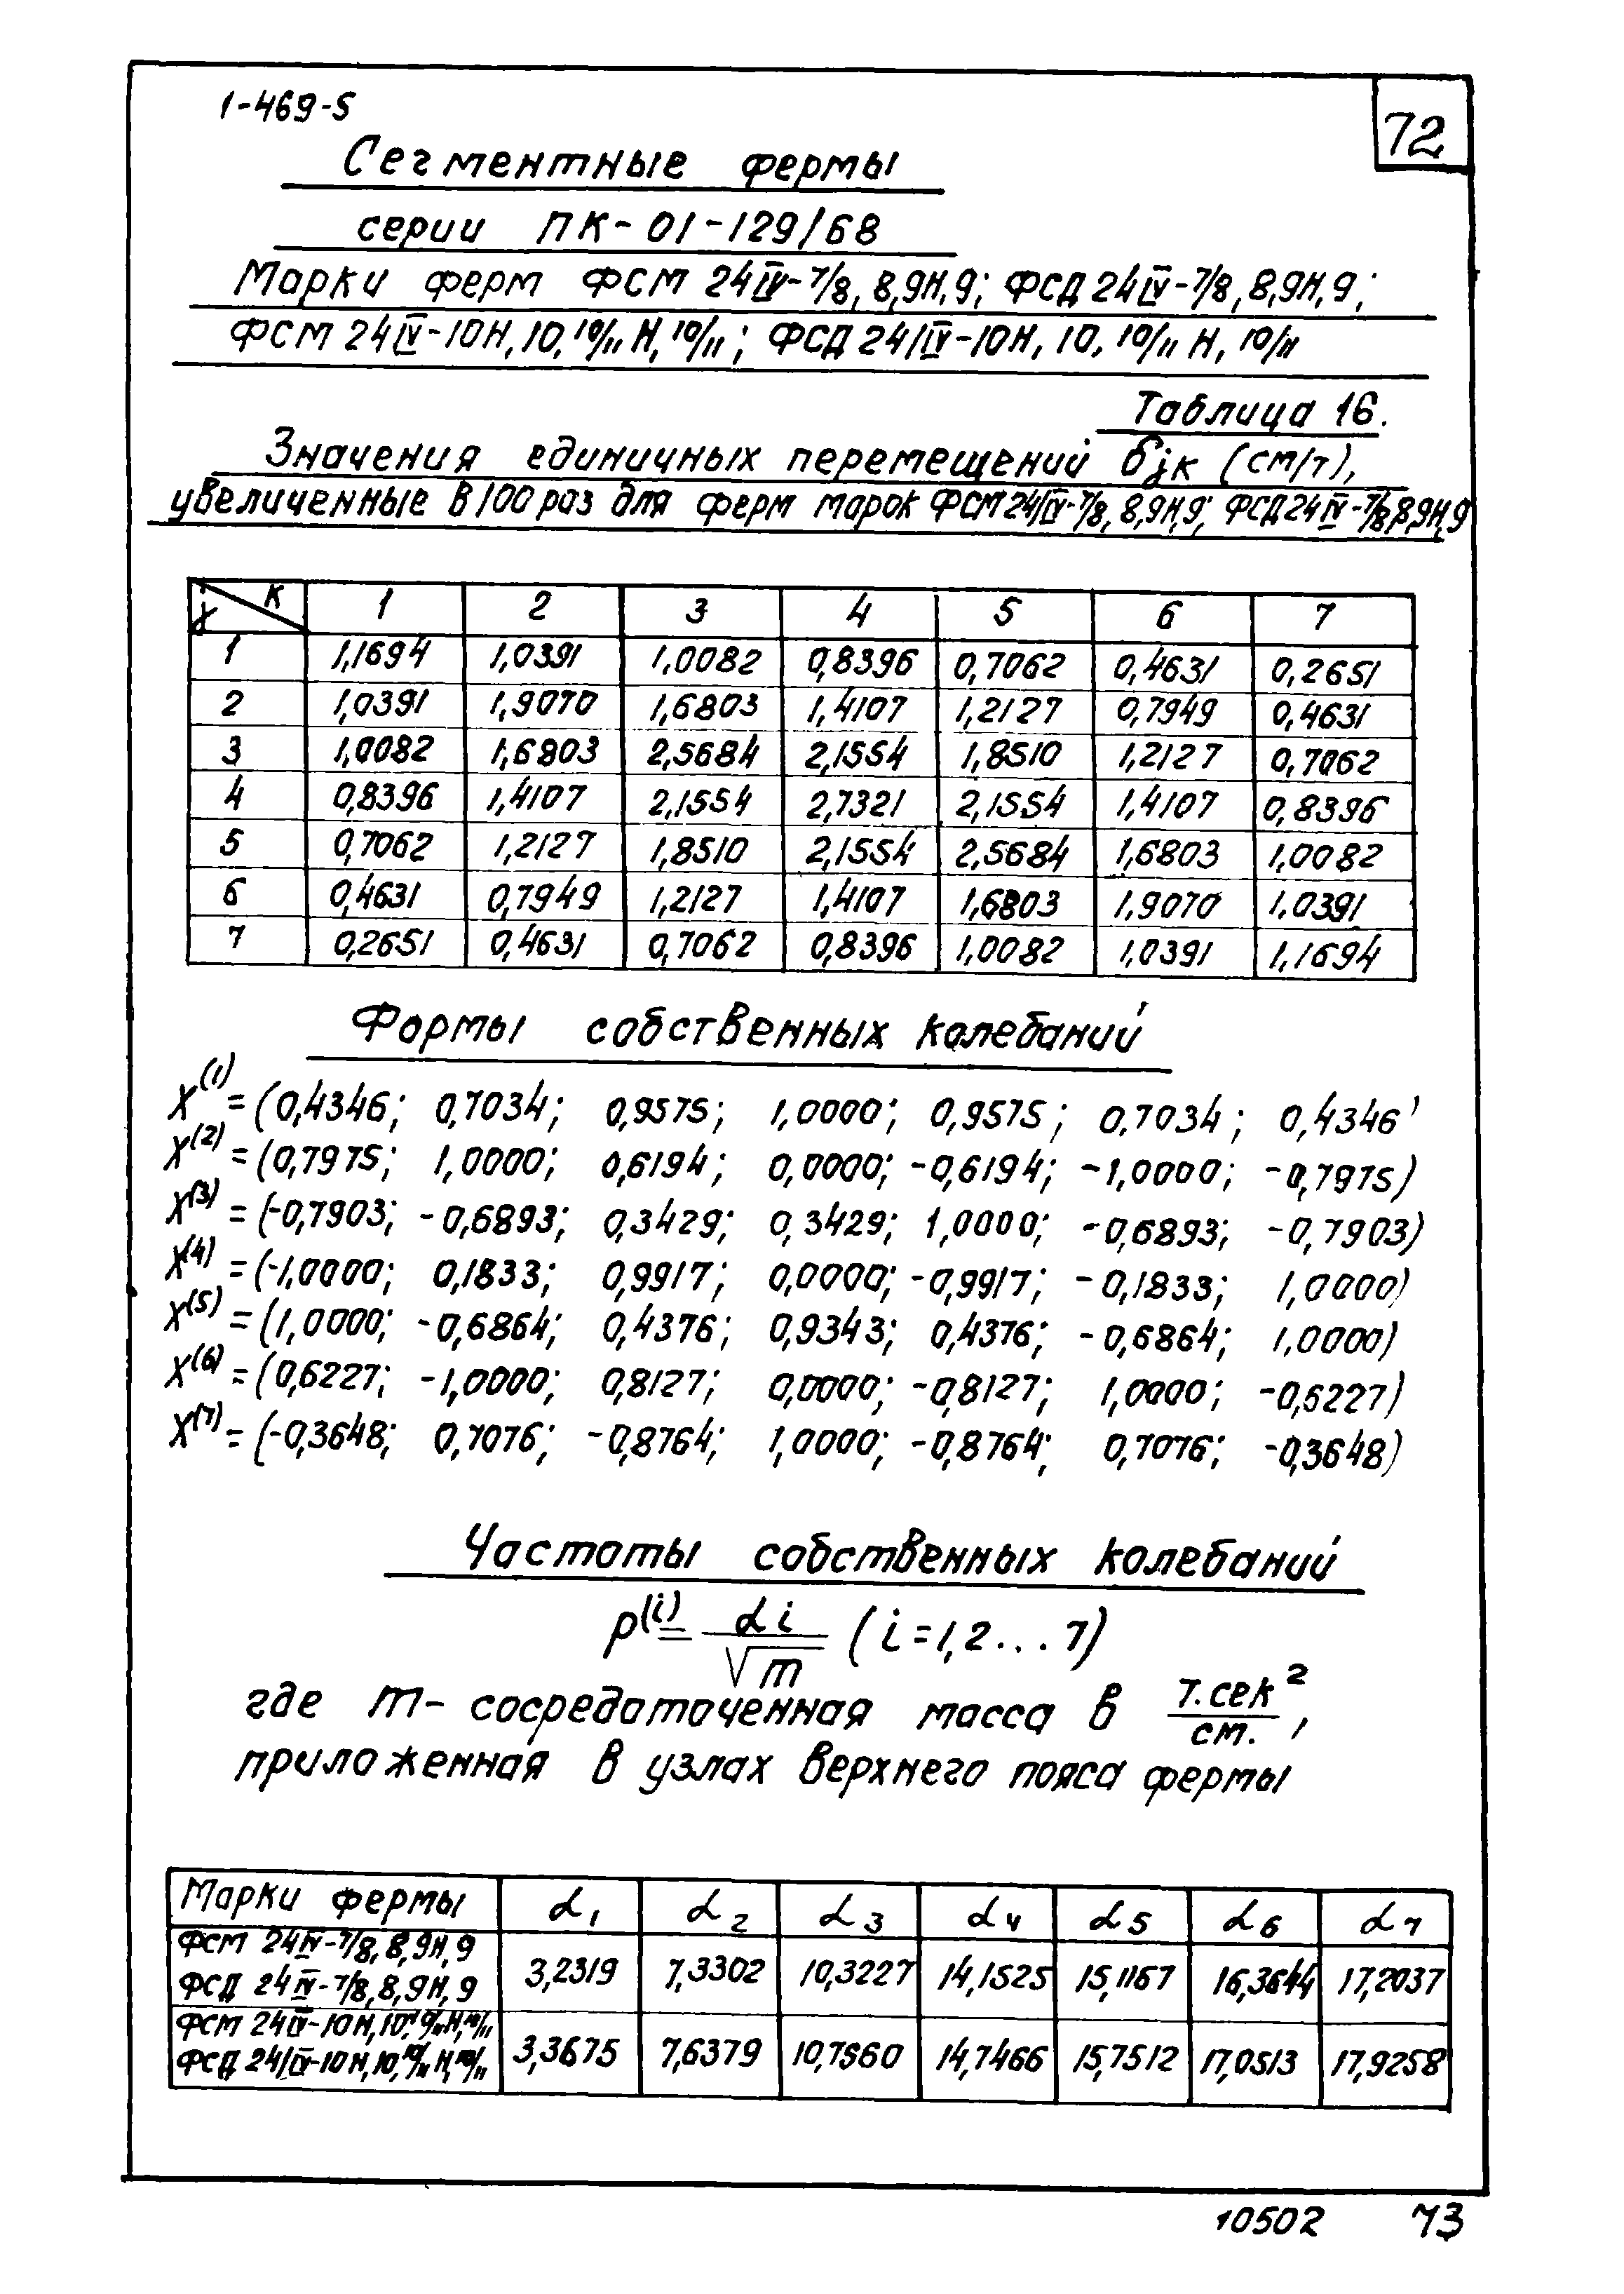 1-469-5
72
Сегментные фермы
серии ПК-01-129/68
Марки ферм ФСМ 24IV-7/8, 8,9Н,9; ФСД 24IV-7/8, 8,9Н,9;
ФСМ 24IV-10Н,10,10/11Н,10/11; ФСД 24/IV-10Н, 10, 10/11 Н, 10/11
Таблица 16.
Значения единичных перемещений δjк (см/т),
увеличенные в 100 раз для ферм марок ФСМ 24/IV-7/8, 8,9Н,9; ФСД 24IV-7/8,8,9Н,9
j к 1 2 3 4 5 6 7
1 1,1694 1,0391 1,0082 0,8396 0,7062 0,4631 0,2651
2 1,0391 1,9070 1,6803 1,4107 1,2127 0,7949 0,4631
3 1,0082 1,6803 2,5684 2,1554 1,8510 1,2127 0,7062
4 0,8396 1,4107 2,1554 2,7321 2,1554 1,4107 0,8396
5 0,7062 1,2127 1,8510 2,1554 2,5684 1,6803 1,0082
6 0,4631 0,7949 1,2127 1,4107 1,6803 1,9070 1,0391
7 0,2651 0,4631 0,7062 0,8396 1,0082 1,0391 1,1694
Формы собственных колебаний
X(1)=(0,4346; 0,7034; 0,9575; 1,0000; 0,9575; 0,7034; 0,4346'
X(2)=(0,7975; 1,0000; 0,6194; 0,0000; -0,6194; -1,0000; -0,7975)
X(3)=(-0,7903; -0,6893; 0,3429; 0,3429; 1,0000; -0,6893; -0,7903)
X(4)=(-1,0000; 0,1833; 0,9917; 0,0000; -0,9917; -0,1833; 1,0000)
X(5)=(1,0000; -0,6864; 0,4376; 0,9343; 0,4376; -0,6864; 1,0000)
X(6)=(0,6227; -1,0000; 0,8127; 0,0000; -0,8127; 1,0000; -0,6227)
X(7)=(-0,3648; 0,7076; -0,8764; 1,0000; -0,8764; 0,7076; -0,3648)
Частоты собственных колебаний
p(i)= αi/√m (i=1,2...7)
где m- сосредоточенная масса в т.сек²/см. ,
приложенная в узлах верхнего пояса фермы
Марки фермы α1 α2 α3 α4 α5 α6 α7
ФСМ 24IV-7/8,8,9Н,9
ФСД 24IV-7/8,8,9Н,9 3,2319 7,3302 10,3227 14,1525 15,1167 16,3644 17,2037
ФСМ 24IV-10Н,10,10/11Н,10/11
ФСД 24/IV-10Н,10,10/11Н,10/11 3,3675 7,6379 10,7560 14,7466 15,7512 17,0513 17,9258
10502 73